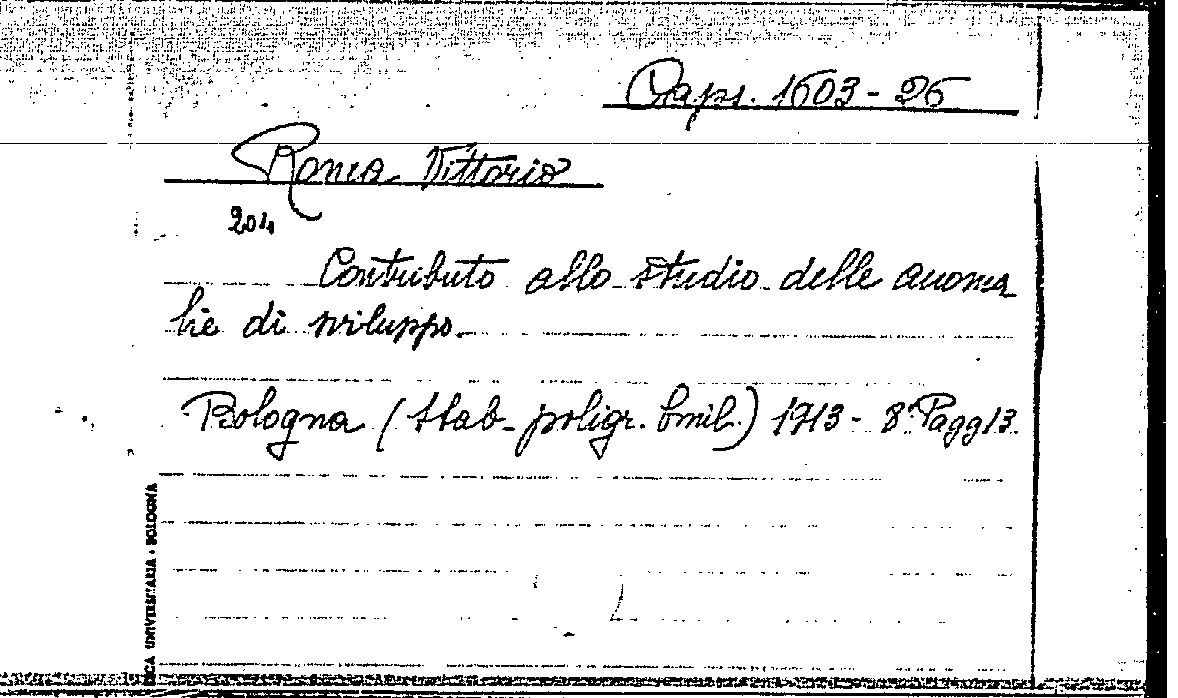 Caps. 1603-26
Ronca Vittorio
204
Contributo allo studio delle anoma
lie di sviluppo.
Bologna (Stab. poligr. Emil.) 1913 - 8° Pagg 13.
ECA UNIVERSITARIA - BOLOGNA